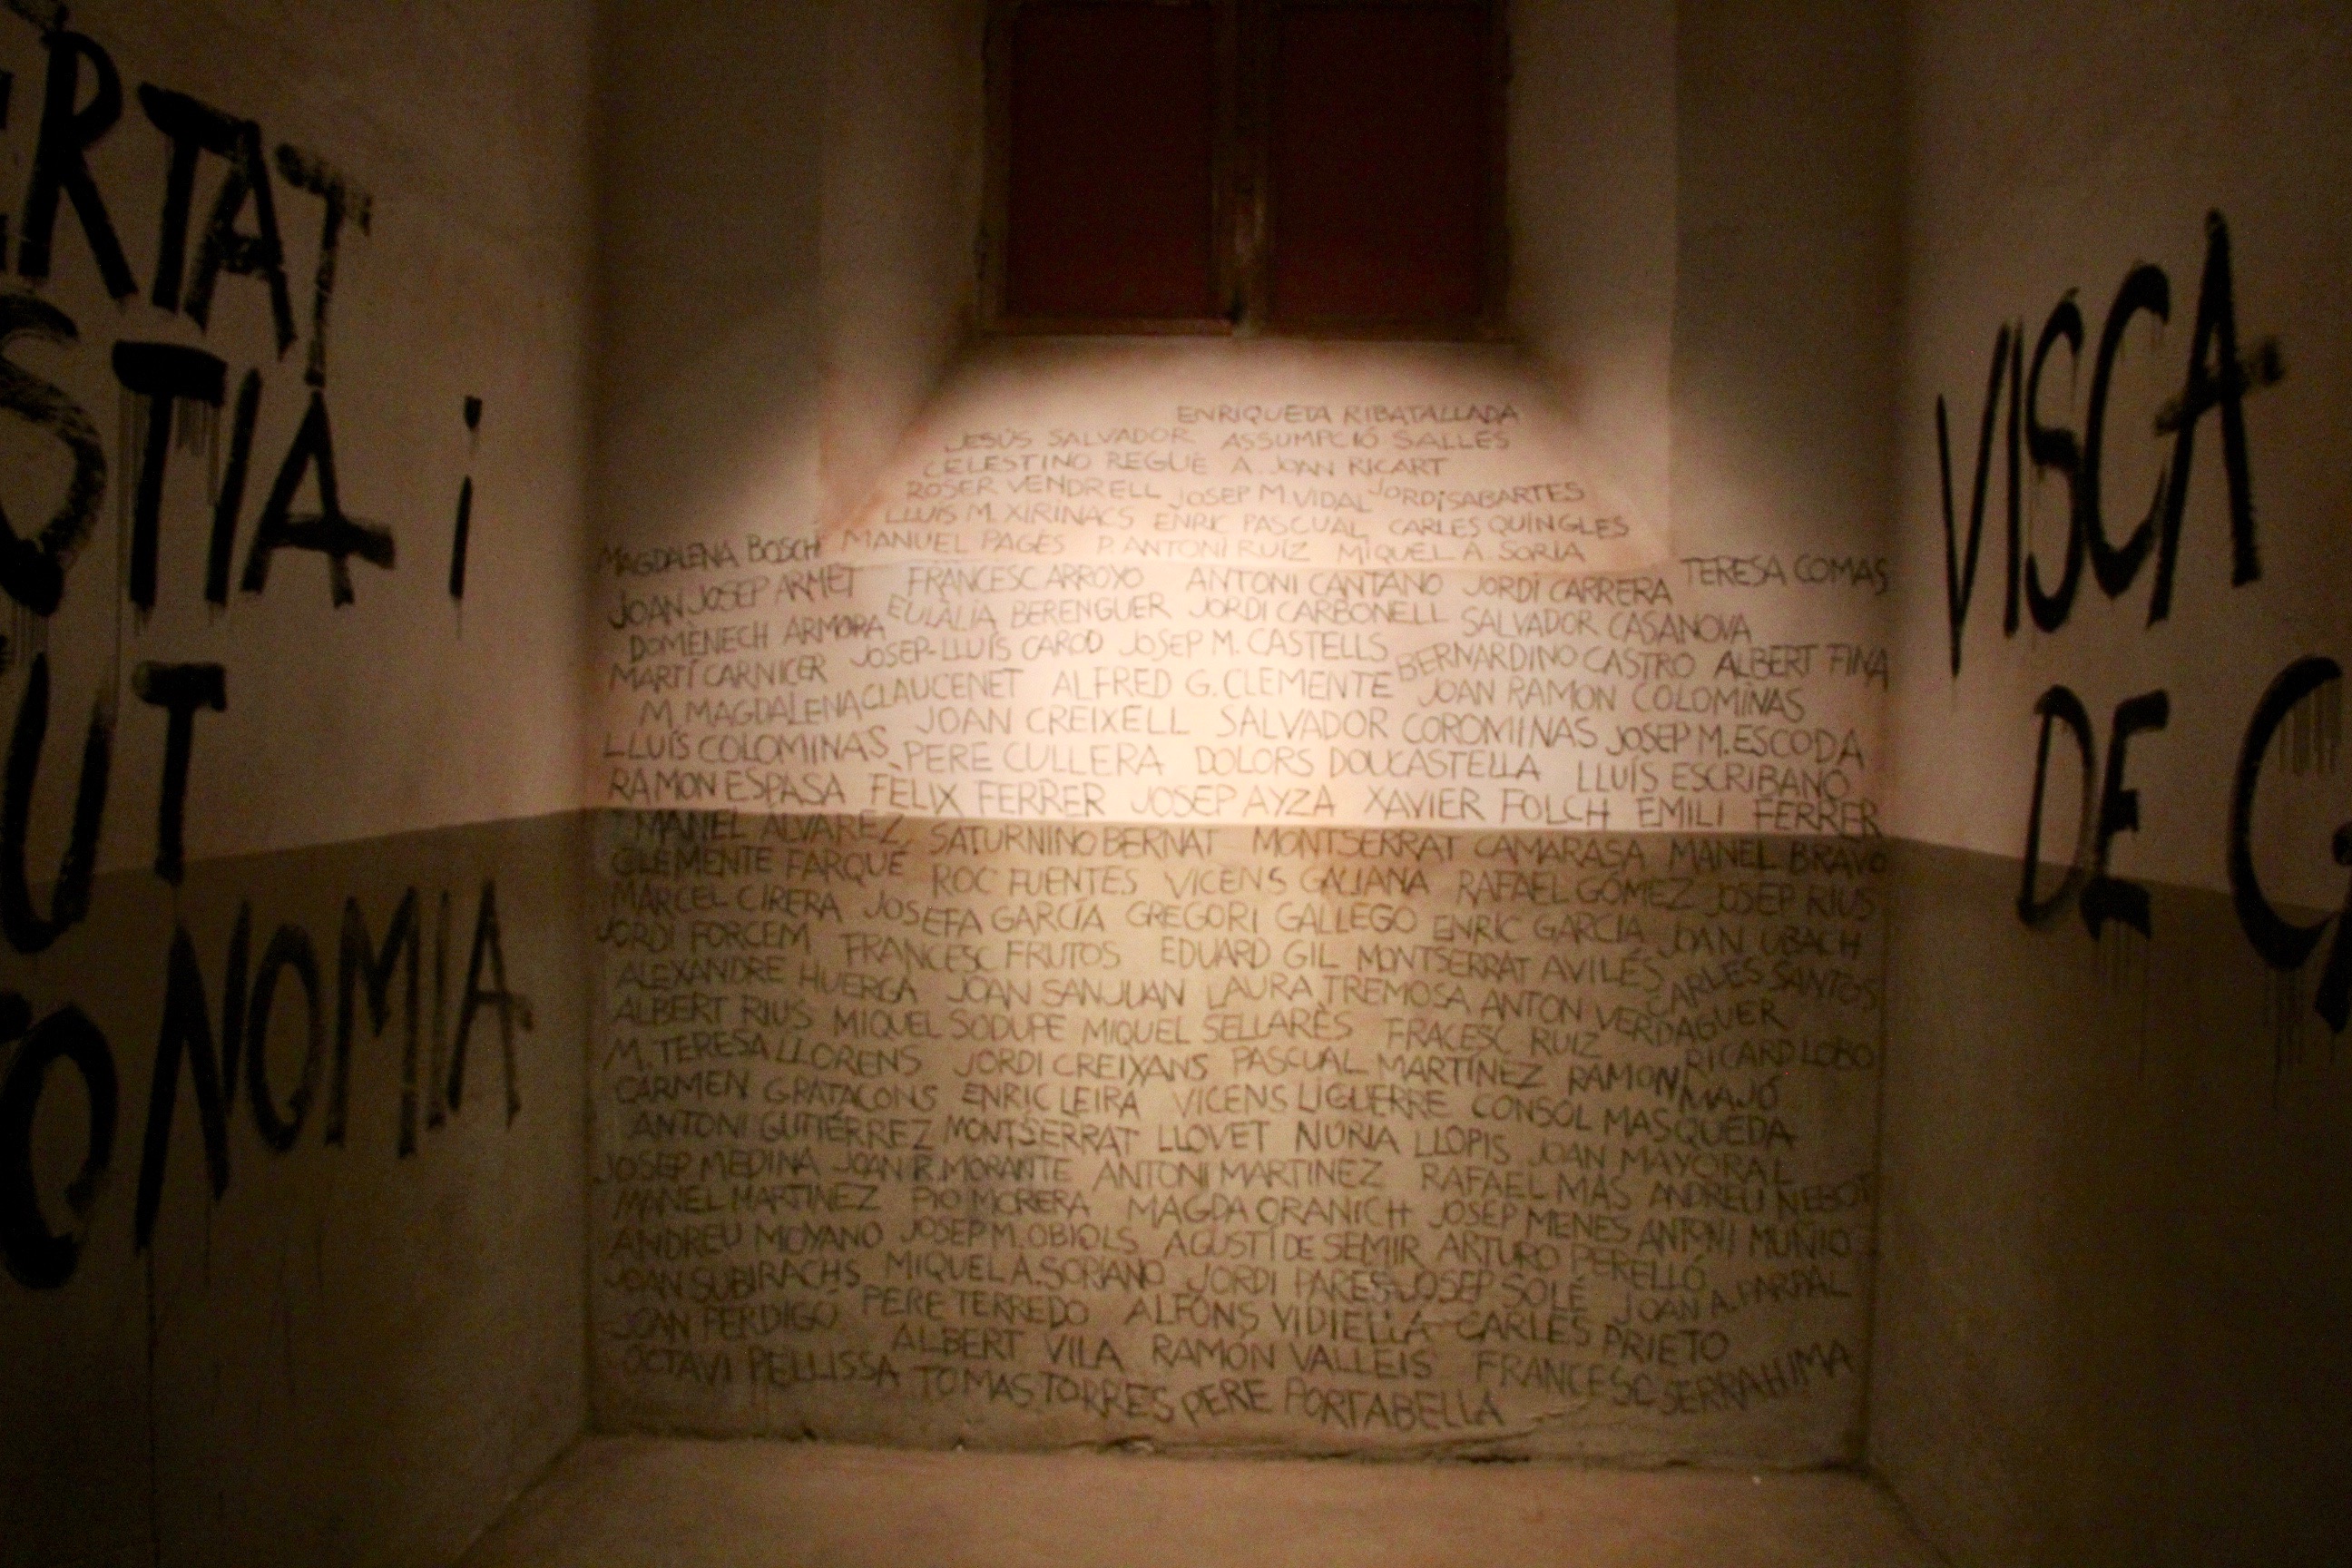 RTAT
STIA i
UT
ONOMIA
ENRIQUETA RIBATALLADA
JESÚS SALVADOR ASSUMPCIÓ SALLÉS
CELESTINO REGUÉ A. JOAN RICART
ROSER VENDRELL JOSEP M. VIDAL JORDI SABARTES
LLUIS M. XIRINACS ENRIC PASCUAL CARLES QUINGLES
MANUEL PAGÈS P. ANTONI RUÍZ MIQUEL A. SORIA
MAGDALENA BOSCH TERESA COMAS
JOAN JOSEP ARMET FRANCESC ARROYO ANTONI CANTANO JORDI CARRERA
DOMÈNECH ARMORA EULÀLIA BERENGUER JORDI CARBONELL SALVADOR CASANOVA
MARTÍ CARNICER JOSEP-LLUÍS CAROD JOSEP M. CASTELLS BERNARDINO CASTRO ALBERT FINA
M. MAGDALENA CLAUCENET ALFRED G. CLEMENTE JOAN RAMON COLOMINAS
LLUÍS COLOMINAS JOAN CREIXELL SALVADOR COROMINAS JOSEP M. ESCODA
PERE CULLERA DOLORS DOUCASTELLA LLUÍS ESCRIBANO
RAMON ESPASA FÈLIX FERRER JOSEP AYZA XAVIER FOLCH EMILI FERRER
MANEL ALVAREZ SATURNINO BERNAT MONTSERRAT CAMARASA MANEL BRAVO
CLEMENTE FARQUÉ ROC FUENTES VICENS GALIANA RAFAEL GÓMEZ JOSEP RIUS
MARCEL CIRERA JOSEFA GARCÍA GREGORI GALLEGO ENRIC GARCIA JOAN UBACH
JORDI FORCEM FRANCESC FRUTOS EDUARD GIL MONTSERRAT AVILÉS CARLES SANTOS
ALEXANDRE HUERGA JOAN SANJUAN LAURA TREMOSA ANTON VERDAGUER
ALBERT RIUS MIQUEL SODUPE MIQUEL SELLARÈS FRACESC RUIZ RICARD LOBO
M. TERESA LLORENS JORDI CREIXANS PASCUAL MARTÍNEZ RAMON MAJÓ
CARMEN GRATACONS ENRIC LEIRA VICENS LIGUERRE CONSOL MASQUEDA
ANTONI GUTIÉRREZ MONTSERRAT LLOVET NÚRIA LLOPIS JOAN MAYORAL
JOSEP MEDINA JOAN R. MORANTE ANTONI MARTINEZ RAFAEL MAS ANDREU NEBOT
MANEL MARTINEZ PIO MORERA MAGDA ORANICH JOSEP MENES ANTONI MUÑIO
ANDREU MOYANO JOSEP M. OBIOLS AGUSTÍ DE SEMIR ARTURO PERELLÓ
JOAN SUBIRACHS MIQUEL A. SORIANO JORDI PARES JOSEP SOLÉ JOAN A. PARPAL
JOAN PERDIGÓ PERE TERREDO ALFONS VIDIELLA CARLES PRIETO
ALBERT VILA RAMÓN VALLEIS FRANCESC SERRAHIMA
OCTAVI PELLISSA TOMAS TORRES PERE PORTABELLA
VISCA
DE